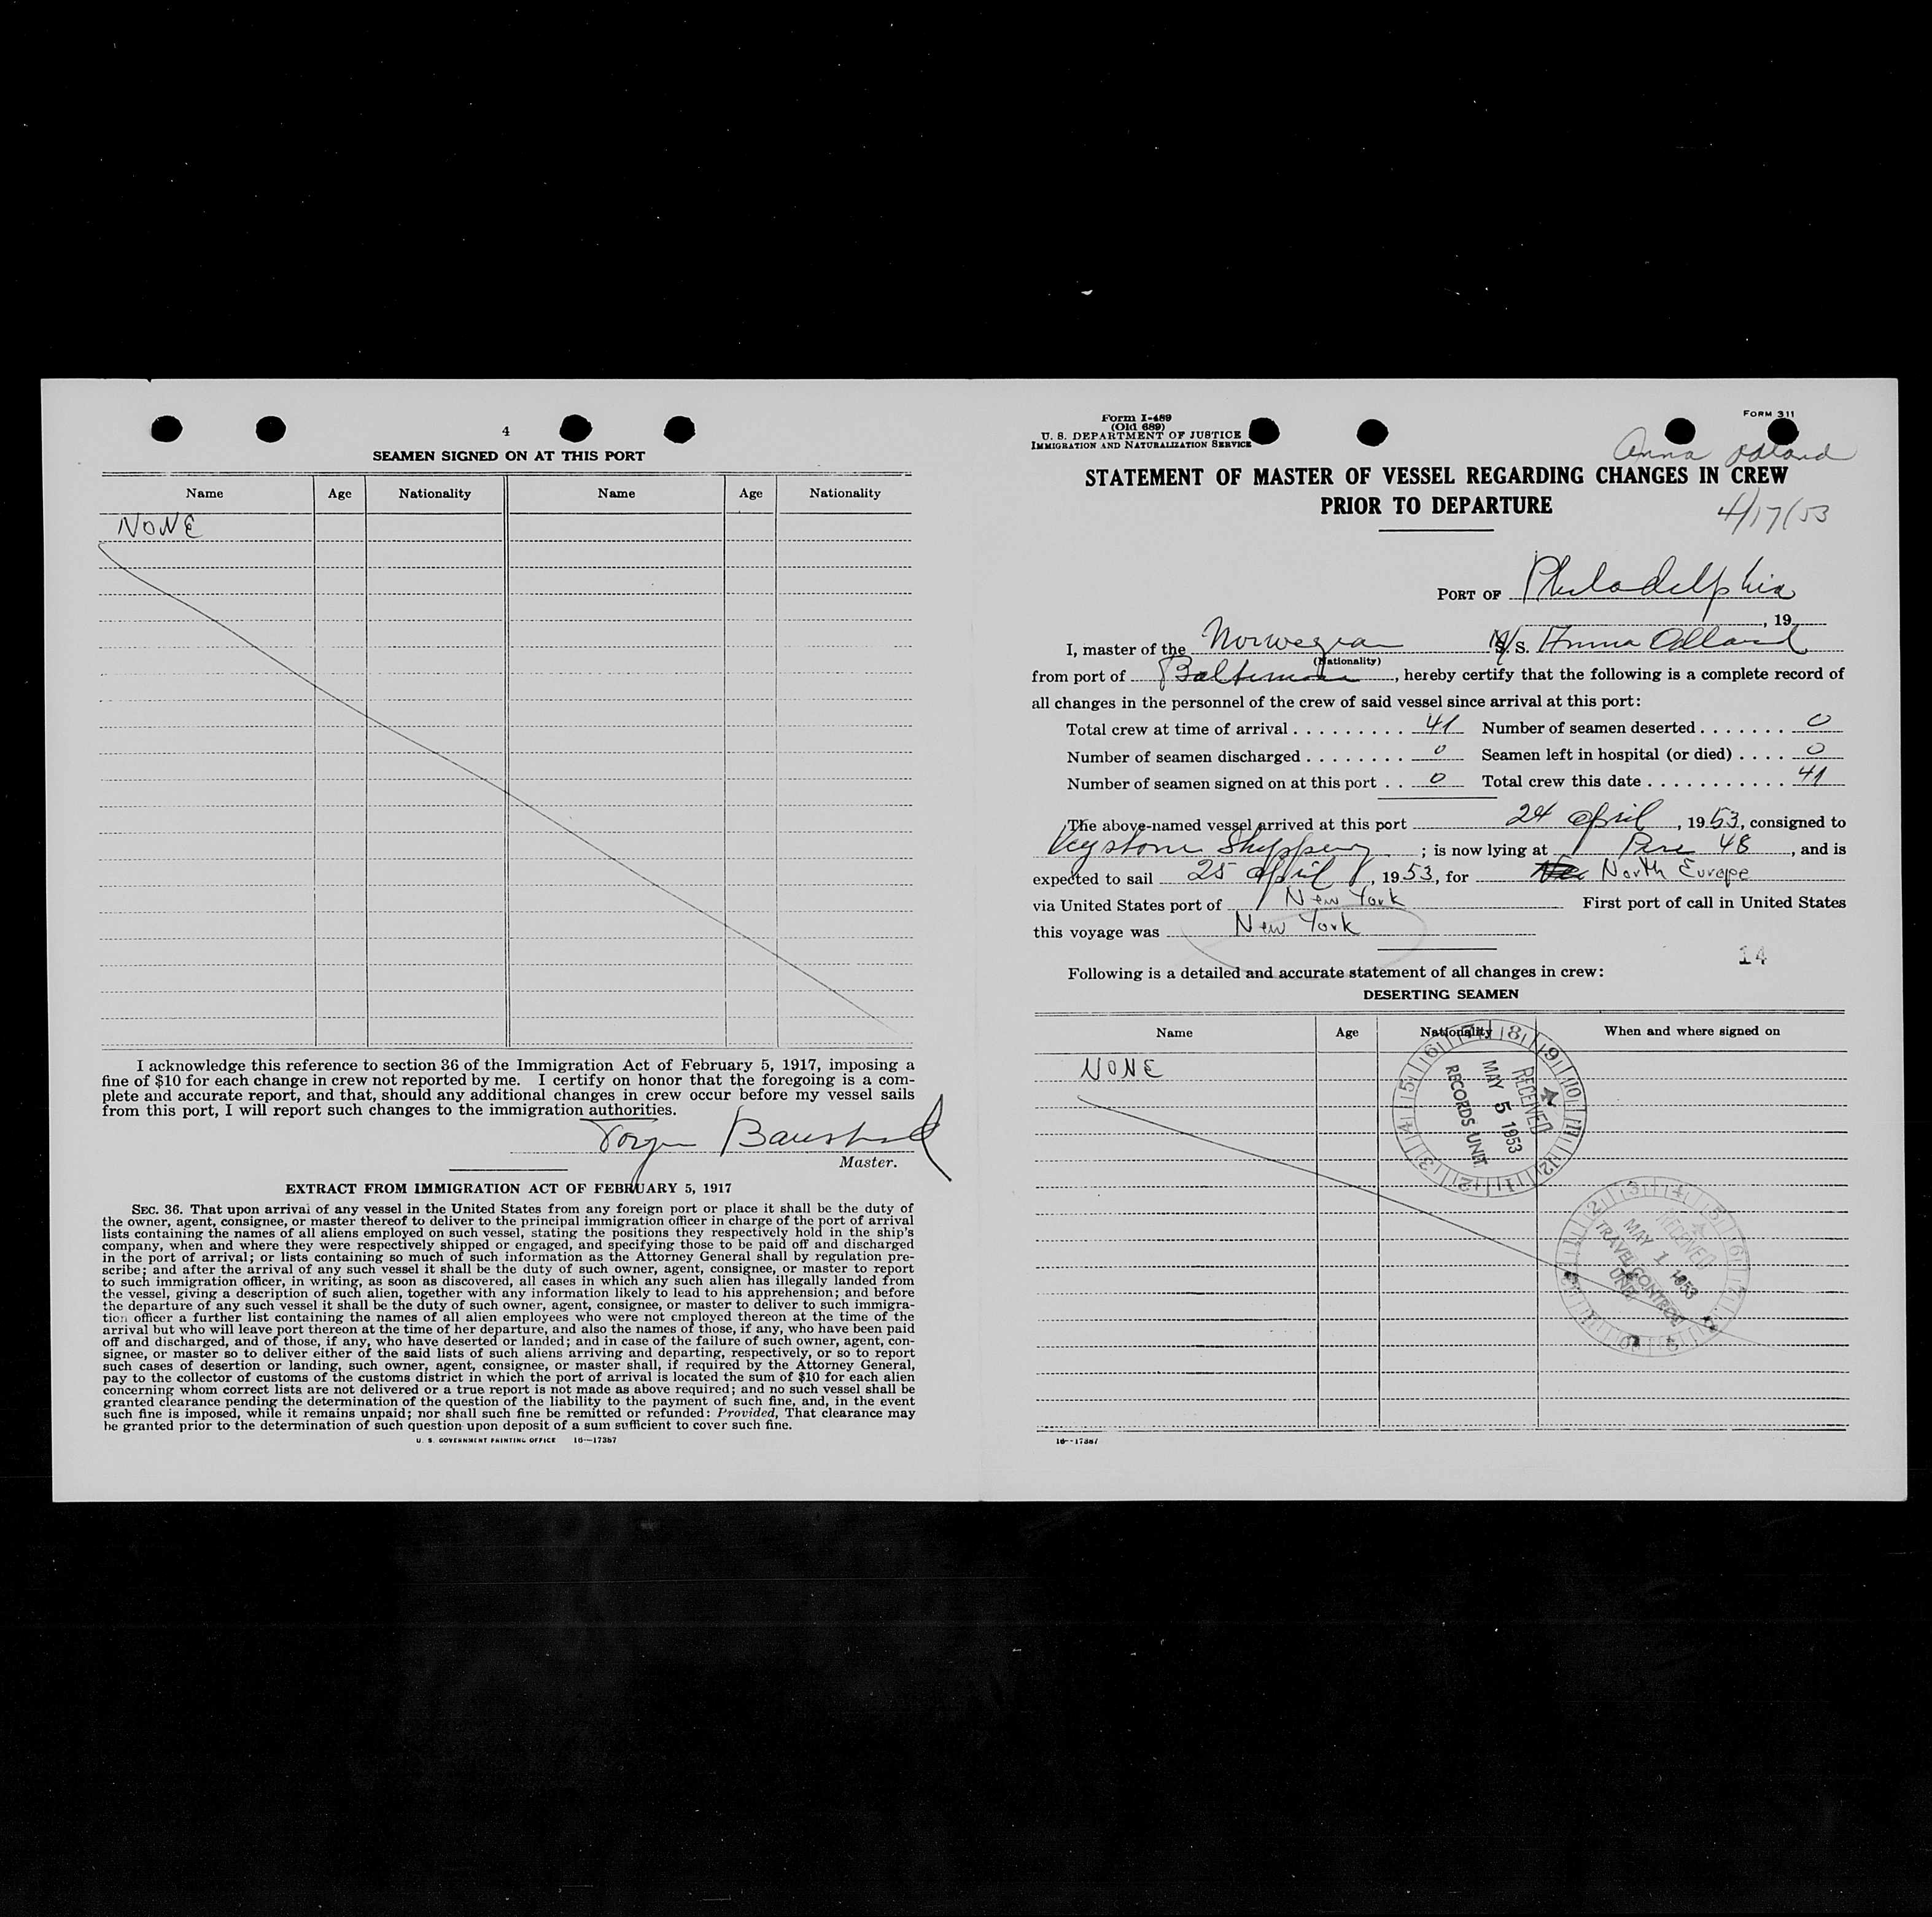 4
SEAMEN SIGNED ON AT THIS PORT
Name Age Nationality Name Age Nationality
NONE
I acknowledge this reference to section 36 of the Immigration Act of February 5, 1917, imposing a
fine of $10 for each change in crew not reported by me. I certify on honor that the foregoing is a com-
plete and accurate report, and that, should any additional changes in crew occur before my vessel sails
from this port, I will report such changes to the immigration authorities.
Master.
EXTRACT FROM IMMIGRATION ACT OF FEBRUARY 5, 1917
SEC. 36. That upon arrival of any vessel in the United States from any foreign port or place it shall be the duty of
the owner, agent, consignee, or master thereof to deliver to the principal immigration officer in charge of the port of arrival
lists containing the names of all aliens employed on such vessel, stating the positions they respectively hold in the ship's
company, when and where they were respectively shipped or engaged, and specifying those to be paid off and discharged
in the port of arrival; or lists containing so much of such information as the Attorney General shall by regulation pre-
scribe; and after the arrival of any such vessel it shall be the duty of such owner, agent, consignee, or master to report
to such immigration officer, in writing, as soon as discovered, all cases in which any such alien has illegally landed from
the vessel, giving a description of such alien, together with any information likely to lead to his apprehension; and before
the departure of any such vessel it shall be the duty of such owner, agent, consignee, or master to deliver to such immigra-
tion officer a further list containing the names of all alien employees who were not employed thereon at the time of the
arrival but who will leave port thereon at the time of her departure, and also the names of those, if any, who have been paid
off and discharged, and of those, if any, who have deserted or landed; and in case of the failure of such owner, agent, con-
signee, or master so to deliver either of the said lists of such aliens arriving and departing, respectively, or so to report
such cases of desertion or landing, such owner, agent, consignee, or master shall, if required by the Attorney General,
pay to the collector of customs of the customs district in which the port of arrival is located the sum of $10 for each alien
concerning whom correct lists are not delivered or a true report is not made as above required; and no such vessel shall be
granted clearance pending the determination of the question of the liability to the payment of such fine, and, in the event
such fine is imposed, while it remains unpaid; nor shall such fine be remitted or refunded: Provided, That clearance may
be granted prior to the determination of such question upon deposit of a sum sufficient to cover such fine.
U. S. GOVERNMENT PRINTING OFFICE 16—17387
Form I-489
(Old 689)
U. S. DEPARTMENT OF JUSTICE
IMMIGRATION AND NATURALIZATION SERVICE
FORM 311
Anna Odland
STATEMENT OF MASTER OF VESSEL REGARDING CHANGES IN CREW
PRIOR TO DEPARTURE
4/17/53
PORT OF Philadelphia
, 19
I, master of the Norwegian M/S. Anna Odland
(Nationality)
from port of Baltimore, hereby certify that the following is a complete record of
all changes in the personnel of the crew of said vessel since arrival at this port:
Total crew at time of arrival . . . . . . . . . 41 Number of seamen deserted . . . . . . . 0
Number of seamen discharged . . . . . . . . 0 Seamen left in hospital (or died) . . . . 0
Number of seamen signed on at this port . . 0 Total crew this date . . . . . . . . . . . 41
The above-named vessel arrived at this port 24 april, 1953, consigned to
Keystone Shipping; is now lying at 48, and is
expected to sail 25 april, 1953, for North Europe
via United States port of New York First port of call in United States
this voyage was New York
14
Following is a detailed and accurate statement of all changes in crew:
DESERTING SEAMEN
Name Age Nationality When and where signed on
NONE
RECEIVED
MAY 5 1953
RECORDS UNIT
RECEIVED
MAY 1 1953
TRAVEL CONTROL
UNIT
16—17387